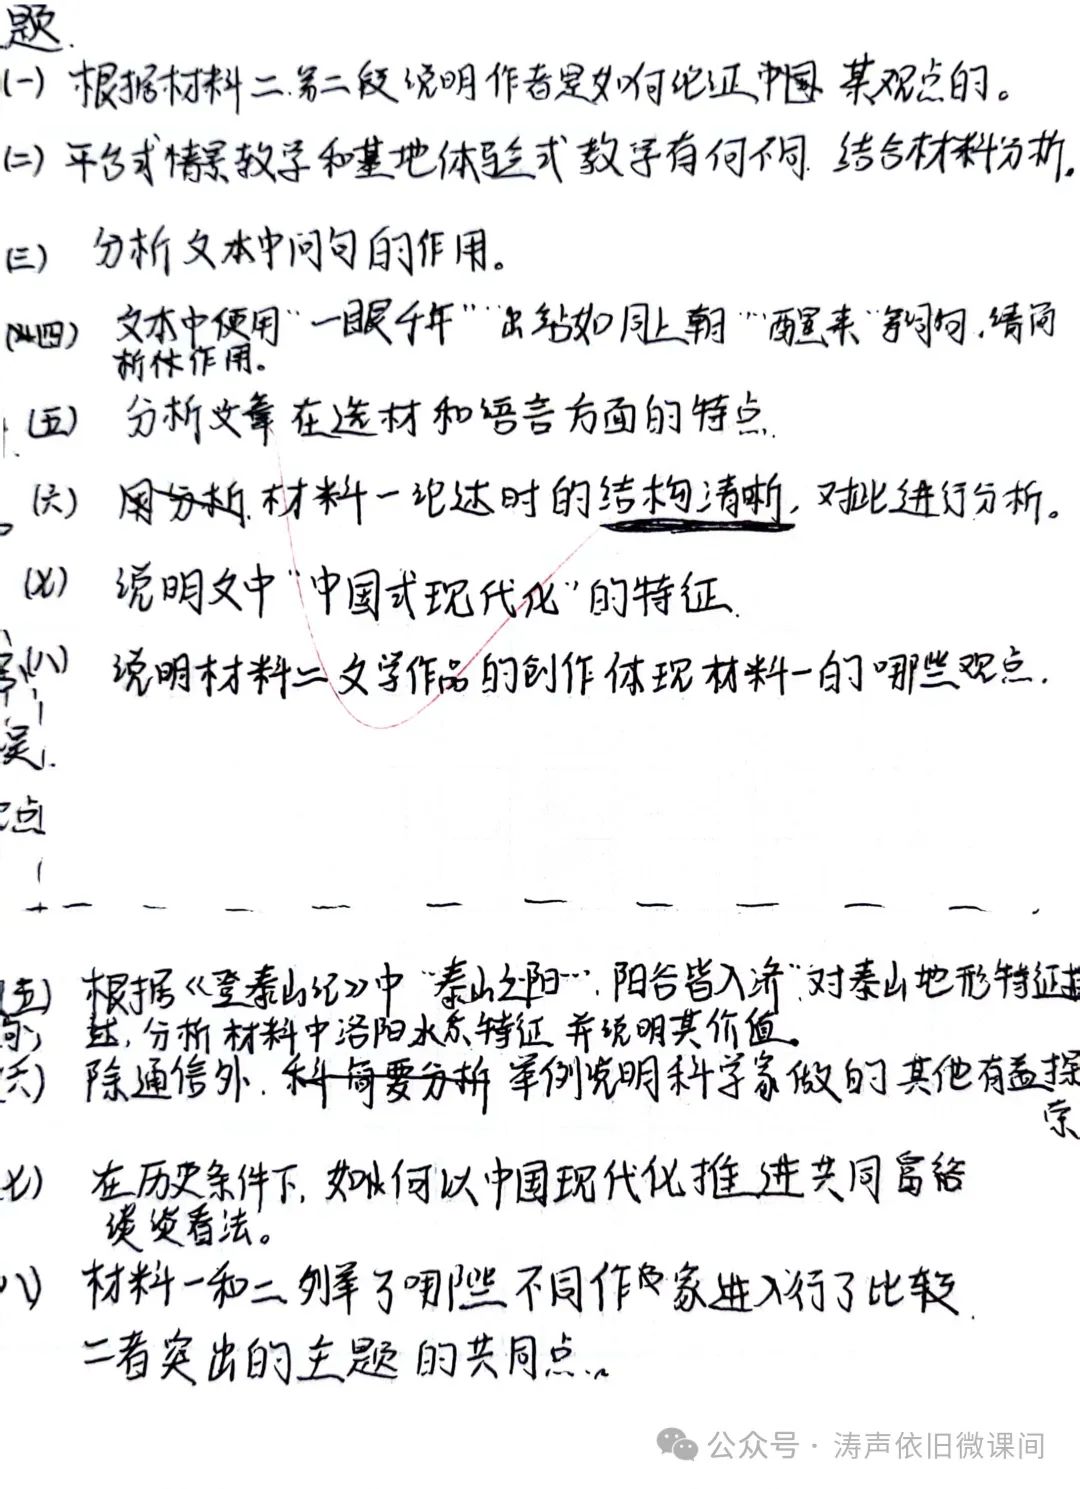 题.
(一) 根据材料二.第二段说明作者是如何论证中国某观点的。
(二) 平台式情景教学和基地体验式教学有何不同.结合材料分析.
(三) 分析文本中问句的作用。
(四) 文本中使用“一眼千年”“出站如同上朝”“醒来”等词句.请简
析其作用。
(五) 分析文章在选材和语言方面的特点.
(六) 材料一论述时的结构清晰,对此进行分析。
(七) 说明文中“中国式现代化”的特征.
(八) 说明材料二文学作品的创作体现材料一的哪些观点.
误.
点
(五) 根据《登泰山记》中“泰山之阳…,阳谷皆入济”对泰山地形特征描
述,分析材料中洛阳水系特征并说明其价值。
六) 除通信外.科简要分析 举例说明科学家做的其他有益探
索
七) 在历史条件下,如何以中国现代化推进共同富裕
谈谈看法。
八) 材料一和二列举了哪些不同作家进行了比较.
二者突出的主题的共同点..
公众号·涛声依旧微课间